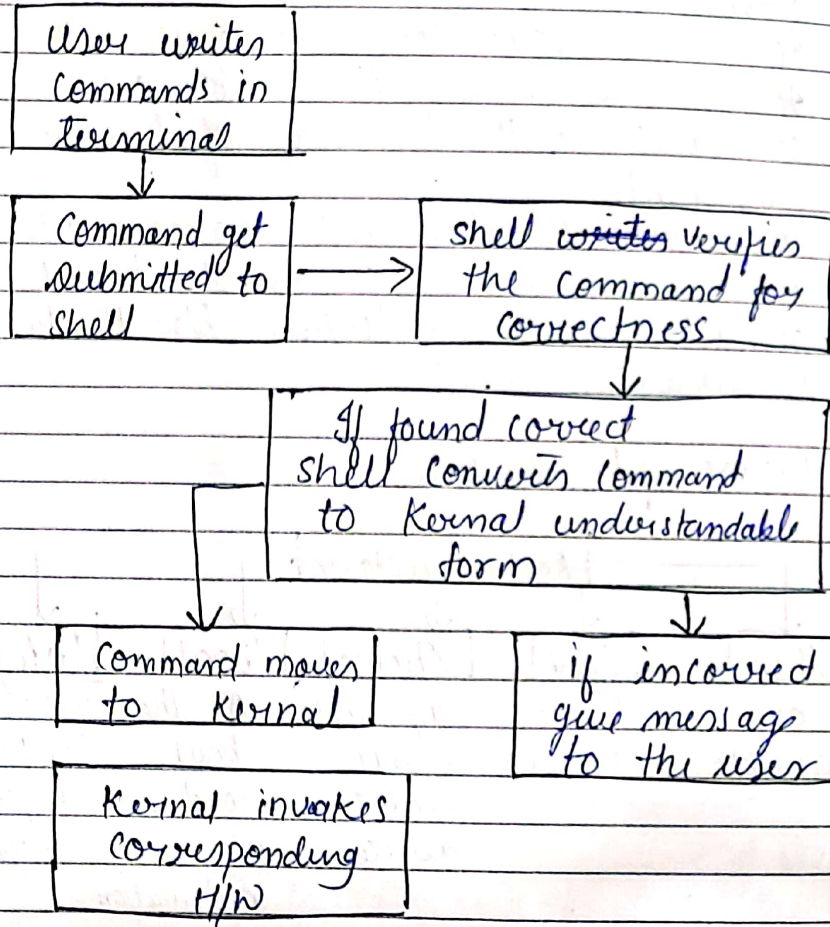 User writes
commands in
terminal
Command get
submitted to
shell
shell writes verifies
the command for
correctness
If found correct
shell converts command
to Kernal understandable
form
Command moves
to Kernal
if incorred
give message
to the user
Kernal invokes
corresponding
H/W